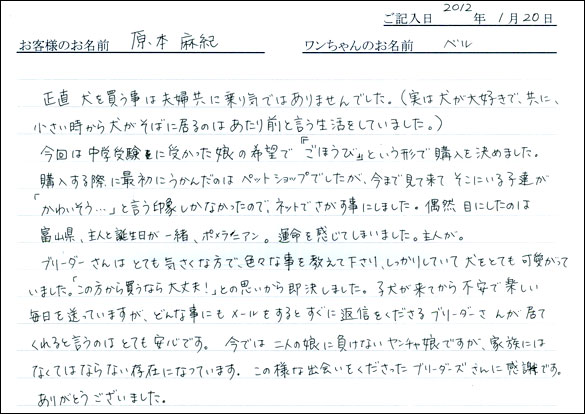 ご記入日 2012 年 1月20日
お客様のお名前 原本 麻紀 ワンちゃんのお名前 ベル
正直 犬を買う事は夫婦共に乗り気ではありませんでした。(実は犬が大好きで、共に、
小さい時から犬がそばに居るのはあたり前と言う生活をしていました。)
今回は中学受験に受かった娘の希望で『ごほうび』という形で購入を決めました。
購入する際に最初にうかんだのはペットショップでしたが、今まで見て来て そこにいる子達が
「かわいそう…」と言う印象しかなかったので、ネットでさがす事にしました。偶然 目にしたのは
富山県、主人と誕生日が一緒、ポメラニアン。運命を感じてしまいました。主人が。
ブリーダーさんはとても気さくな方で、色々な事を教えて下さり、しっかりしていて犬をとても可愛がって
いました。「この方から買うなら大丈夫!」との思いから即決しました。子犬が来てから不安で楽しい
毎日を送っていますが、どんな事にもメールをするとすぐに返信をくださるブリーダーさんが居て
くれると言うのはとても安心です。今では二人の娘に負けないヤンチャ娘ですが、家族には
なくてはならない存在になっています。この様な出会いをくださったブリーダーズさんに感謝です。
ありがとうございました。